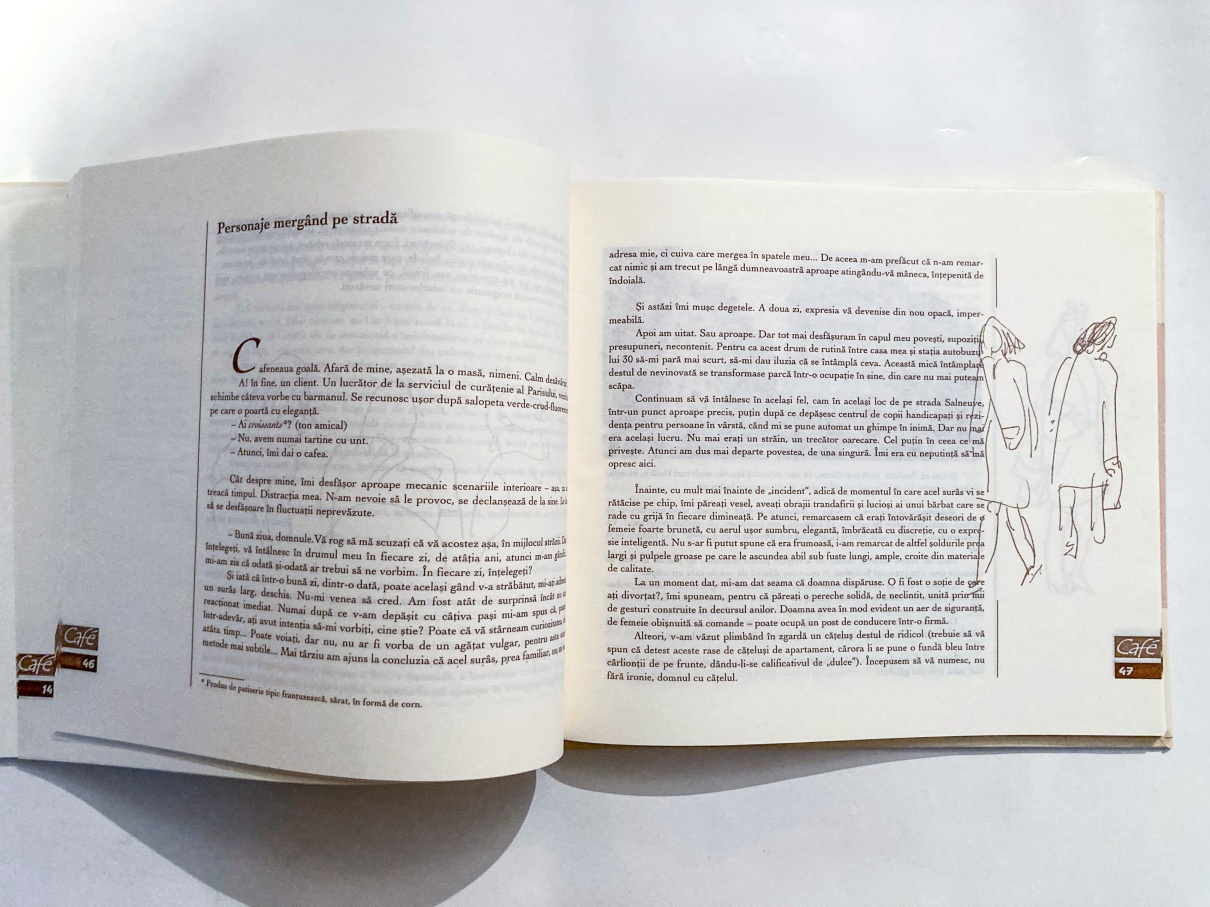 Personaje mergând pe stradă
Cafeneaua goală. Afară de mine, așezată la o masă, nimeni. Calm
A! în fine, un client. Un lucrător de la serviciul de curățenie al Parisului,
schimbe câteva vorbe cu barmanul. Se recunosc ușor după salopeta verde-crud-fluorescent
pe care o poartă cu eleganță.
– Ai croissants*? (ton amical)
– Nu, avem numai tartine cu unt.
– Atunci, îmi dai o cafea.
Cât despre mine, îmi desfășor aproape mecanic scenariile interioare – așa,
treacă timpul. Distracția mea. N-am nevoie să le provoc, se declanșează de la sine.
să se desfășoare în fluctuații neprevăzute.
– Bună ziua, domnule. Vă rog să mă scuzați că vă acostez așa, în mijlocul străzii.
înțelegeți, vă întâlnesc în drumul meu în fiecare zi, de atâția ani, atunci m-am
mi-am zis că odată și-odată ar trebui să ne vorbim. În fiecare zi, înțelegeți?
Și iată că într-o bună zi, dintr-o dată, poate același gând v-a străbătut, mi-ați
un surâs larg, deschis. Nu-mi venea să cred. Am fost atât de surprinsă încât
reacționat imediat. Numai după ce v-am depășit cu câțiva pași mi-am spus că,
într-adevăr, ați avut intenția să-mi vorbiți, cine știe? Poate că vă stârneam curiozitatea,
atâta timp... Poate voiați, dar nu, nu ar fi vorba de un agățat vulgar, pentru asta
metode mai subtile... Mai târziu am ajuns la concluzia că acel surâs, prea familiar,
* Produs de patiserie tipic franțuzească, sărat, în formă de corn.
Café
46
Café
14
adresa mie, ci cuiva care mergea în spatele meu... De aceea m-am prefăcut că n-am remar-
cat nimic și am trecut pe lângă dumneavoastră aproape atingându-vă mâneca, înțepenită de
îndoială.
Și astăzi îmi mușc degetele. A doua zi, expresia vă devenise din nou opacă, imper-
meabilă.
Apoi am uitat. Sau aproape. Dar tot mai desfășuram în capul meu povești, supoziții,
presupuneri, necontenit. Pentru ca acest drum de rutină între casa mea și stația autobuzu-
lui 30 să-mi pară mai scurt, să-mi dau iluzia că se întâmplă ceva. Această mică întâmplare
destul de nevinovată se transformase parcă într-o ocupație în sine, din care nu mai puteam
scăpa.
Continuam să vă întâlnesc în același fel, cam în același loc de pe strada Salneuve,
într-un punct aproape precis, puțin după ce depășesc centrul de copii handicapați și rezi-
dența pentru persoane în vârstă, când mi se pune automat un ghimpe în inimă. Dar nu mai
era același lucru. Nu mai erați un străin, un trecător oarecare. Cel puțin în ceea ce mă
privește. Atunci am dus mai departe povestea, de una singură. Îmi era cu neputință să mă
opresc aici.
Înainte, cu mult mai înainte de „incident", adică de momentul în care acel surâs vi se
rătăcise pe chip, îmi păreați vesel, aveați obrajii trandafirii și lucioși ai unui bărbat care se
rade cu grijă în fiecare dimineață. Pe atunci, remarcasem că erați întovărășit deseori de o
femeie foarte brunetă, cu aerul ușor sumbru, elegantă, îmbrăcată cu discreție, cu o expre-
sie inteligentă. Nu s-ar fi putut spune că era frumoasă, i-am remarcat de altfel șoldurile prea
largi și pulpele groase pe care le ascundea abil sub fuste lungi, ample, croite din materiale
de calitate.
La un moment dat, mi-am dat seama că doamna dispăruse. O fi fost o soție de care
ați divorțat?, îmi spuneam, pentru că păreați o pereche solidă, de neclintit, unită prin mii
de gesturi construite în decursul anilor. Doamna avea în mod evident un aer de siguranță,
de femeie obișnuită să comande – poate ocupa un post de conducere într-o firmă.
Alteori, v-am văzut plimbând în zgardă un cățeluș destul de ridicol (trebuie să vă
spun că detest aceste rase de căței de apartament, cărora li se pune o fundă bleu între
cârlionții de pe frunte, dându-li-se calificativul de „dulce"). Începusem să vă numesc, nu
fără ironie, domnul cu cățelul.
Café
47